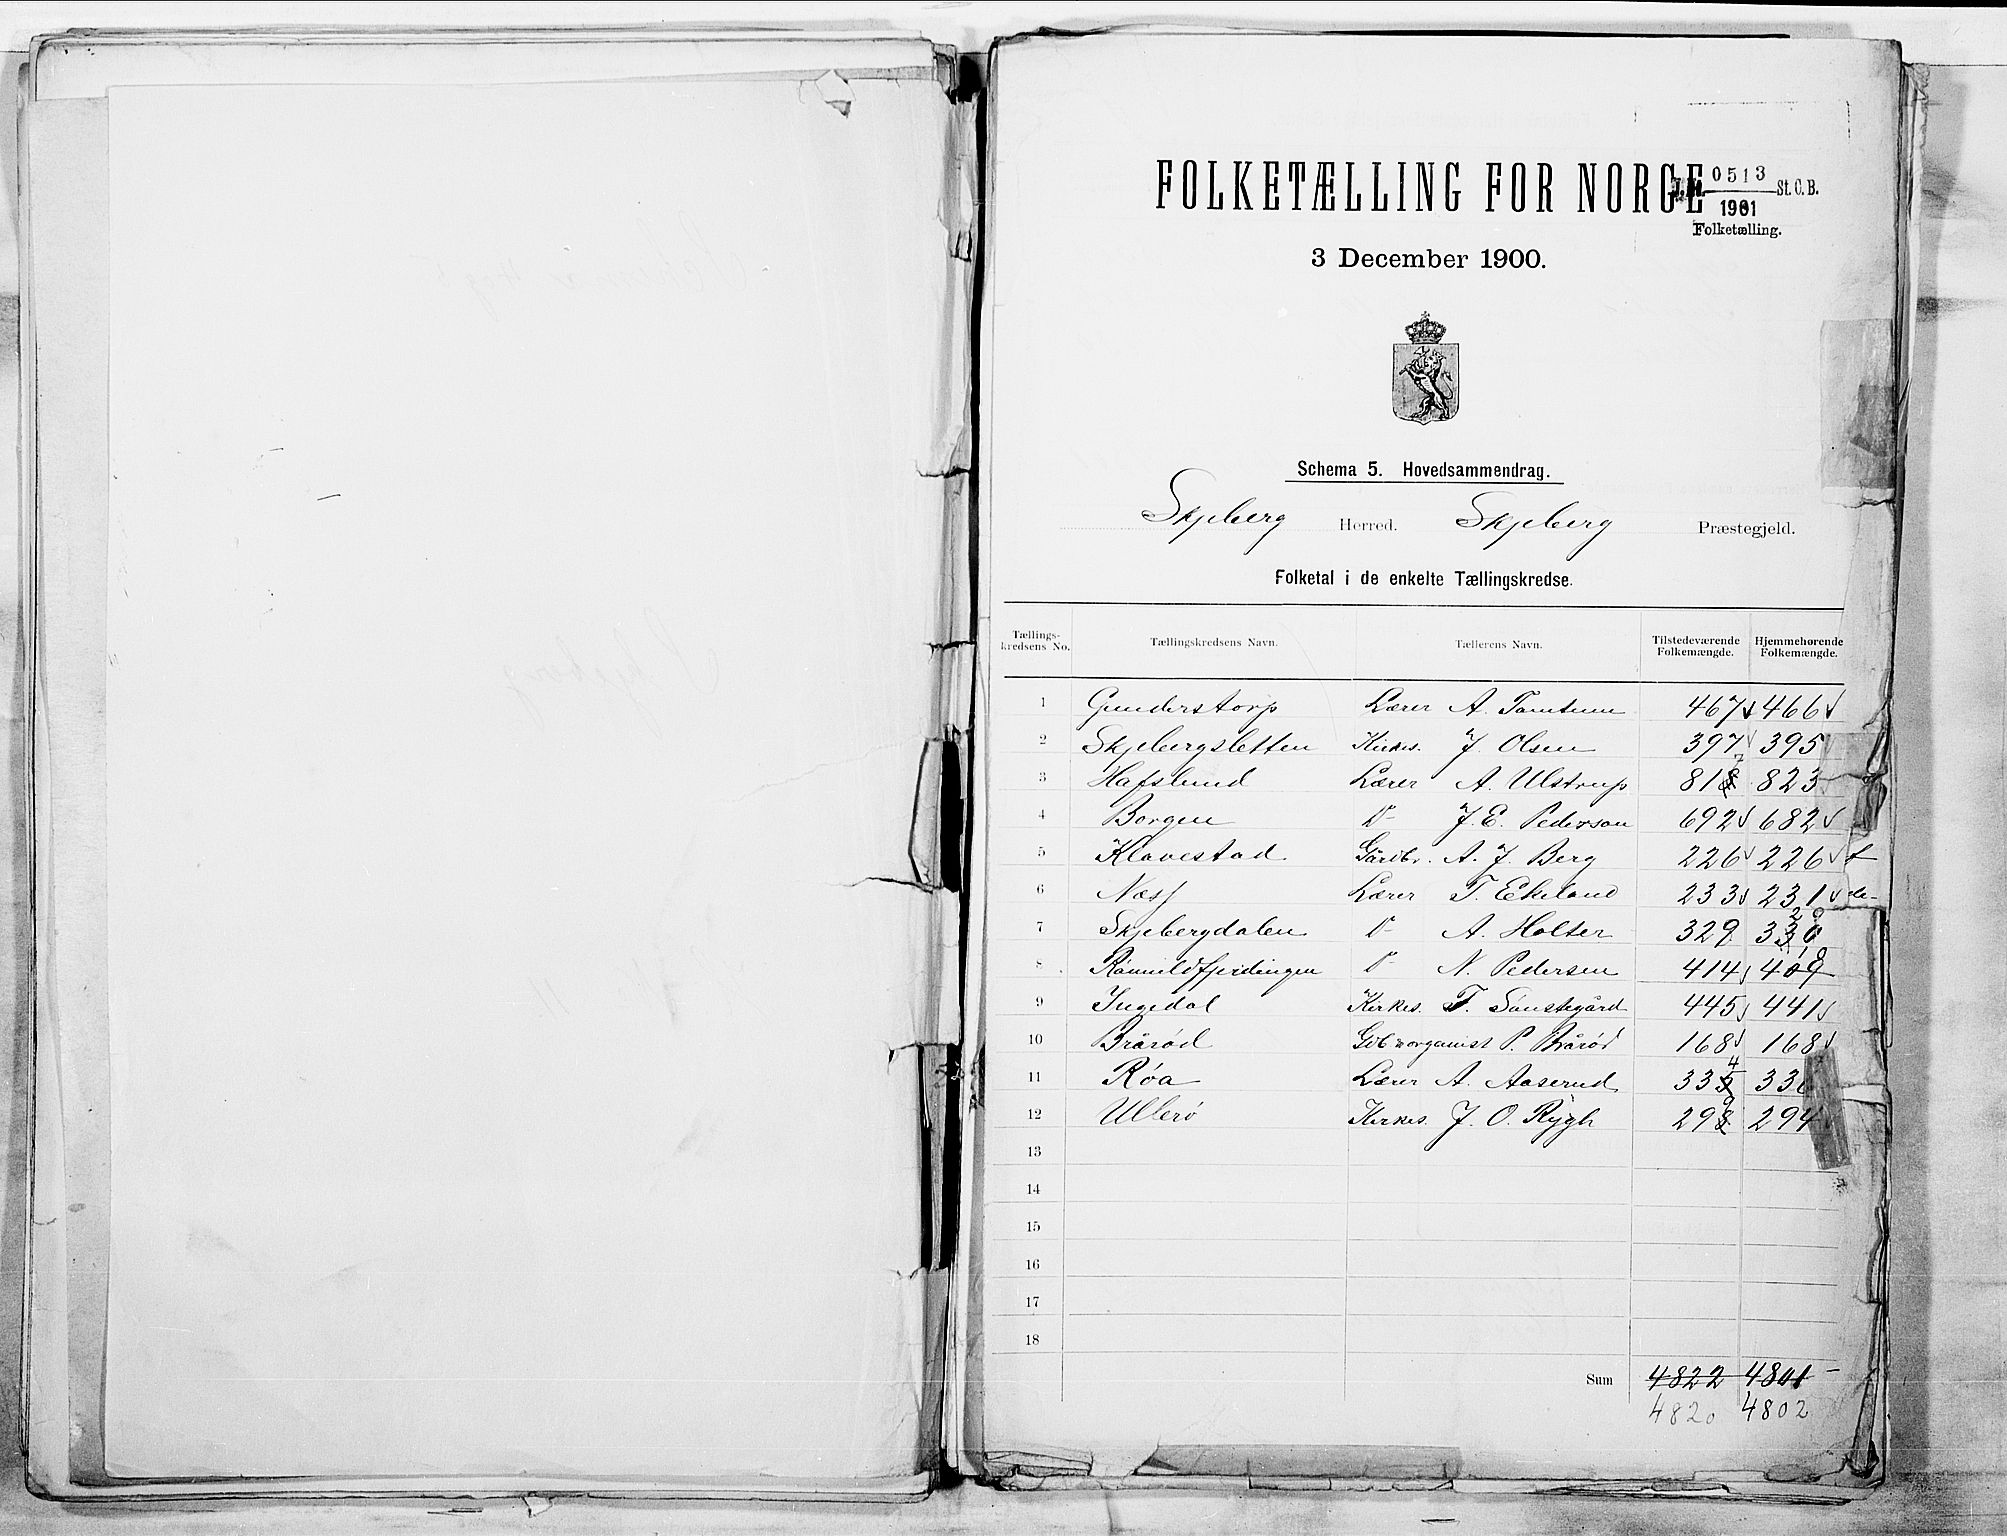 FOLKETÆLLING FOR NORGE
0513
1901
St. C. B.
Folketælling.
3 December 1900.
Schema 5. Hovedsammendrag.
Skjeberg Herred. Skjeberg Præstegjeld.
Folketal i de enkelte Tællingskredse.
Tællings-kredsens No. Tællingskredsens Navn. Tællerens Navn. Tilstedeværende Folkemængde. Hjemmehørende Folkemængde.
1 Gunderstorp Lærer A. Tomtum 467 466
2 Skjebergsletten Kirkes. J. Olsen 397 395
3 Hafslund Lærer A. Ulstrup 817 823
4 Borgen D- J. E. Pederson 692 682
5 Klavestad Gårdbr. A. J. Berg 226 226
6 Næss Lærer T. Ekeland 233 231
7 Skjebergdalen D- A. Holter 329 329
8 N. Pedersen 414
9 Ingedal Kirkes. T. Sønstegård 445 441
10 Brårød Gdb & organist P. Brårød 168 168
11 Røa Lærer A. Aaserud 334
12 Ullerø Kirkes. J. O. Rygh 298 294
13
14
15
16
17
18
Sum 4822 4801
4820 4802